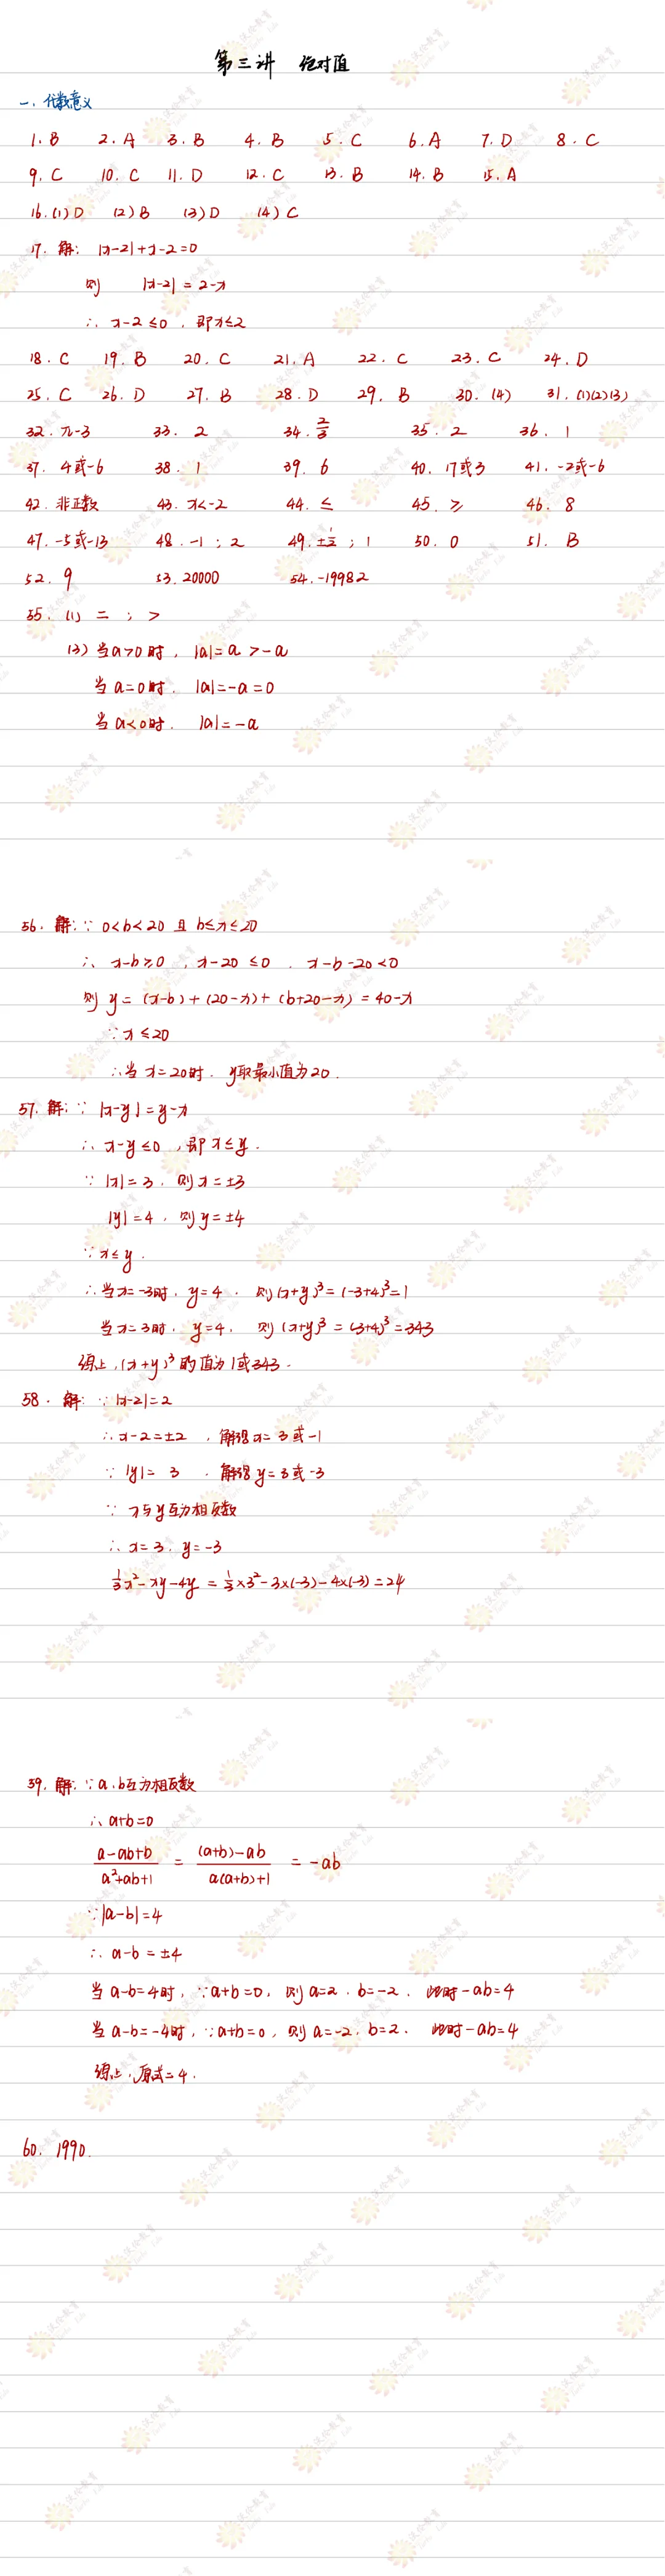 第三讲 绝对值
一、代数意义
1. B 2. A 3. B 4. B 5. C 6. A 7. D 8. C
9. C 10. C 11. D 12. C 13. B 14. B 15. A
16. (1) D (2) B (3) D (4) C
17. 解: |x-2|+x-2=0
则 |x-2|=2-x
∴ x-2≤0, 即x≤2
18. C 19. B 20. C 21. A 22. C 23. C 24. D
25. C 26. D 27. B 28. D 29. B 30. (4) 31. (1)(2)(3)
32. π-3 33. 2 34. 2/3 35. 2 36. 1
37. 4或-6 38. 1 39. 6 40. 17或3 41. -2或-6
42. 非正数 43. x<-2 44. ≤ 45. ≥ 46. 8
47. -5或-13 48. -1; 2 49. ±1/2; 1 50. 0 51. B
52. 9 53. 20000 54. -19982
55. (1) 二; >
(3) 当a>0时, |a|=a>-a
当a=0时, |a|=-a=0
当a<0时, |a|=-a
56. 解: ∵ 0<b<20 且 b≤x≤20
∴ x-b≥0, x-20≤0, x-b-20<0
则 y=(x-b)+(20-x)+(b+20-x)=40-x
∵ x≤20
∴当x=20时, y取最小值为20.
57. 解: ∵ |x-y|=y-x
∴ x-y≤0, 即x≤y.
∵ |x|=3, 则x=±3
|y|=4, 则y=±4
∵ x≤y.
∴当x=-3时, y=4, 则(x+y)³=(-3+4)³=1
当x=3时, y=4, 则(x+y)³=(3+4)³=343
综上, (x+y)³的值为1或343.
58. 解: ∵ |x-2|=2
∴ x-2=±2, 解得x=3或-1
∵ |y|=3, 解得y=3或-3
∵ x与y互为相反数
∴ x=3, y=-3
1/3x²-xy-4y=1/3×3²-3×(-3)-4×(-3)=24
59. 解: ∵a、b互为相反数
∴ a+b=0
(a-ab+b)/(a²+ab+1) = ((a+b)-ab)/(a(a+b)+1) = -ab
∵|a-b|=4
∴ a-b=±4
当a-b=4时, ∵a+b=0, 则a=2, b=-2, 此时-ab=4
当a-b=-4时, ∵a+b=0, 则a=-2, b=2, 此时-ab=4
综上, 原式=4.
60. 1990.